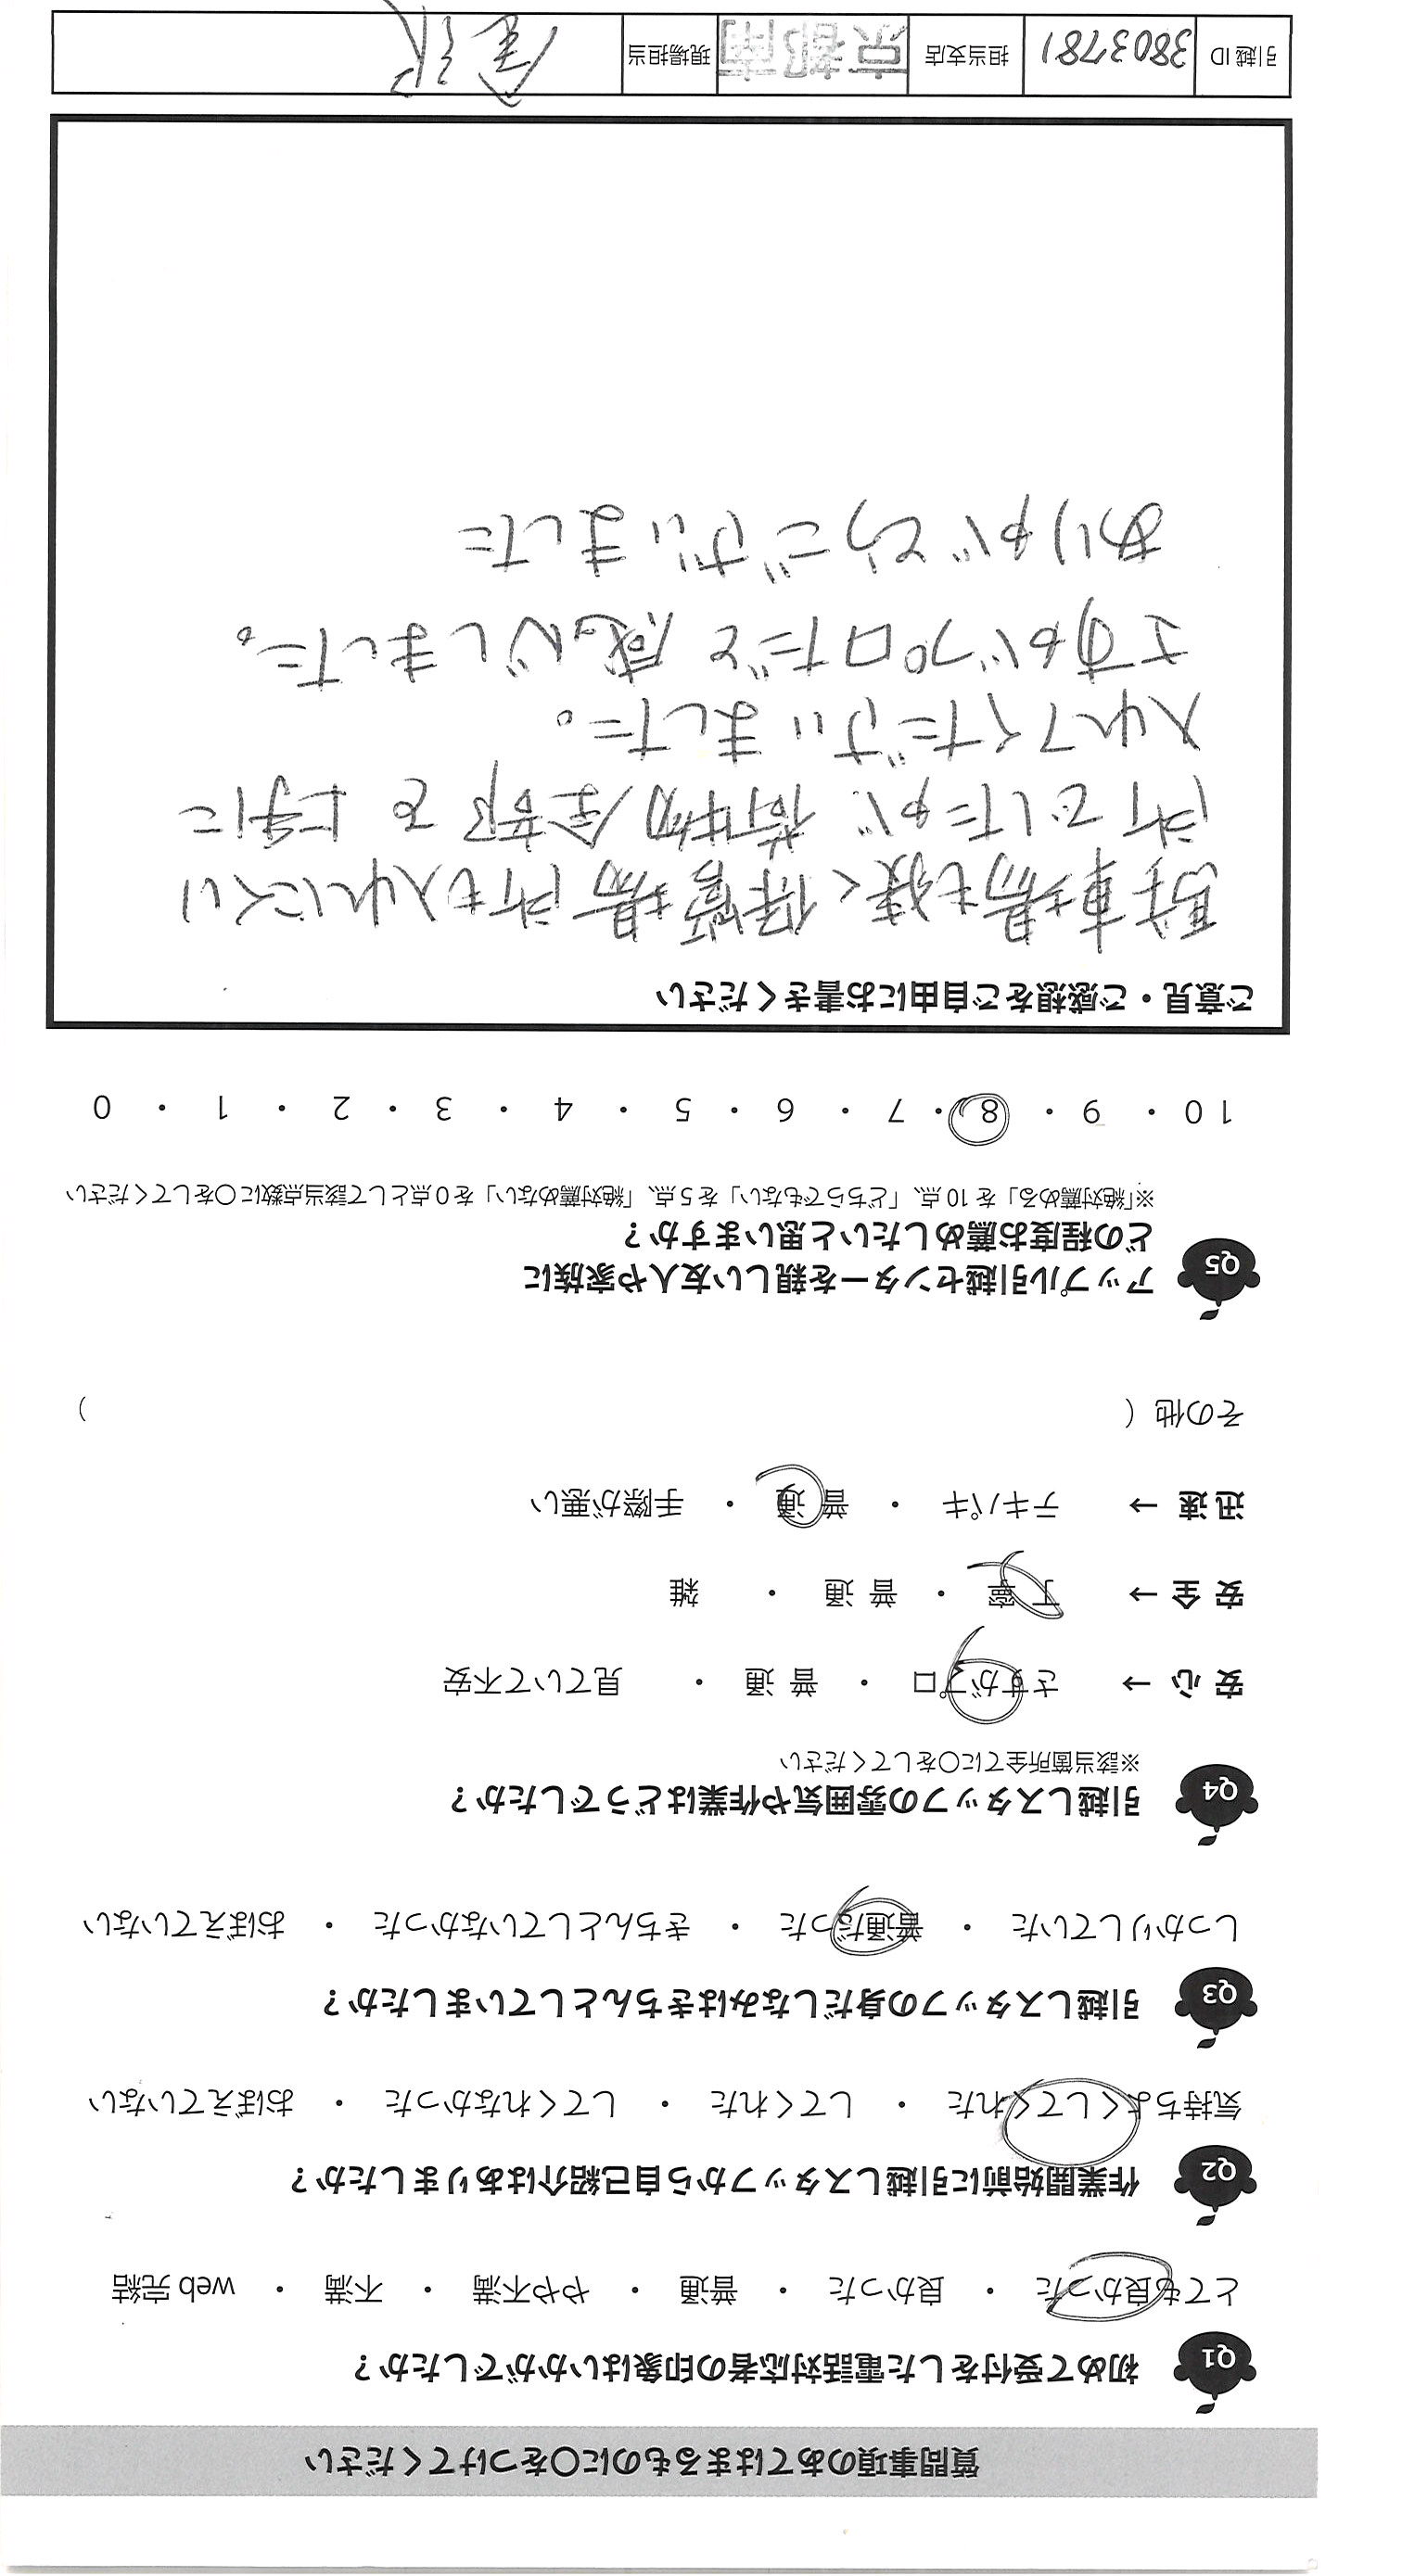 質問事項のあてはまるものに〇をつけてください
Q1 初めて受付をした電話対応者の印象はいかがでしたか？
とても良かった ・ 良かった ・ 普通 ・ やや不満 ・ 不満 ・ web 完結
Q2 作業開始前に引越しスタッフから自己紹介はありましたか？
気持ちよくしてくれた ・ してくれた ・ してくれなかった ・ おぼえていない
Q3 引越しスタッフの身だしなみはきちんとしていましたか？
しっかりしていた ・ 普通だった ・ きちんとしていなかった ・ おぼえていない
Q4 引越しスタッフの雰囲気や作業はどうでしたか？
※該当箇所全てに〇をしてください
安心→ さすがプロ ・ 普通 ・ 見ていて不安
安全→ 丁寧 ・ 普通 ・ 雑
迅速→ テキパキ ・ 普通 ・ 手際が悪い
その他（ ）
Q5 アップル引越センターを親しい友人や家族に
どの程度お薦めしたいと思いますか？
※「絶対薦める」を10点、「どちらでもない」を5点、「絶対薦めない」を0点として該当点数に〇をしてください
10 ・ 9 ・ 8 ・ 7 ・ 6 ・ 5 ・ 4 ・ 3 ・ 2 ・ 1 ・ 0
ご意見・ご感想をご自由にお書きください
駐車場も狭く保管場所も入れにくい
所でしたが、荷物全部を上手に
入れてくださいました。
さすがプロだと感心しました。
ありがとうございました
引越ID 3803781 担当支店 京都南 現場担当